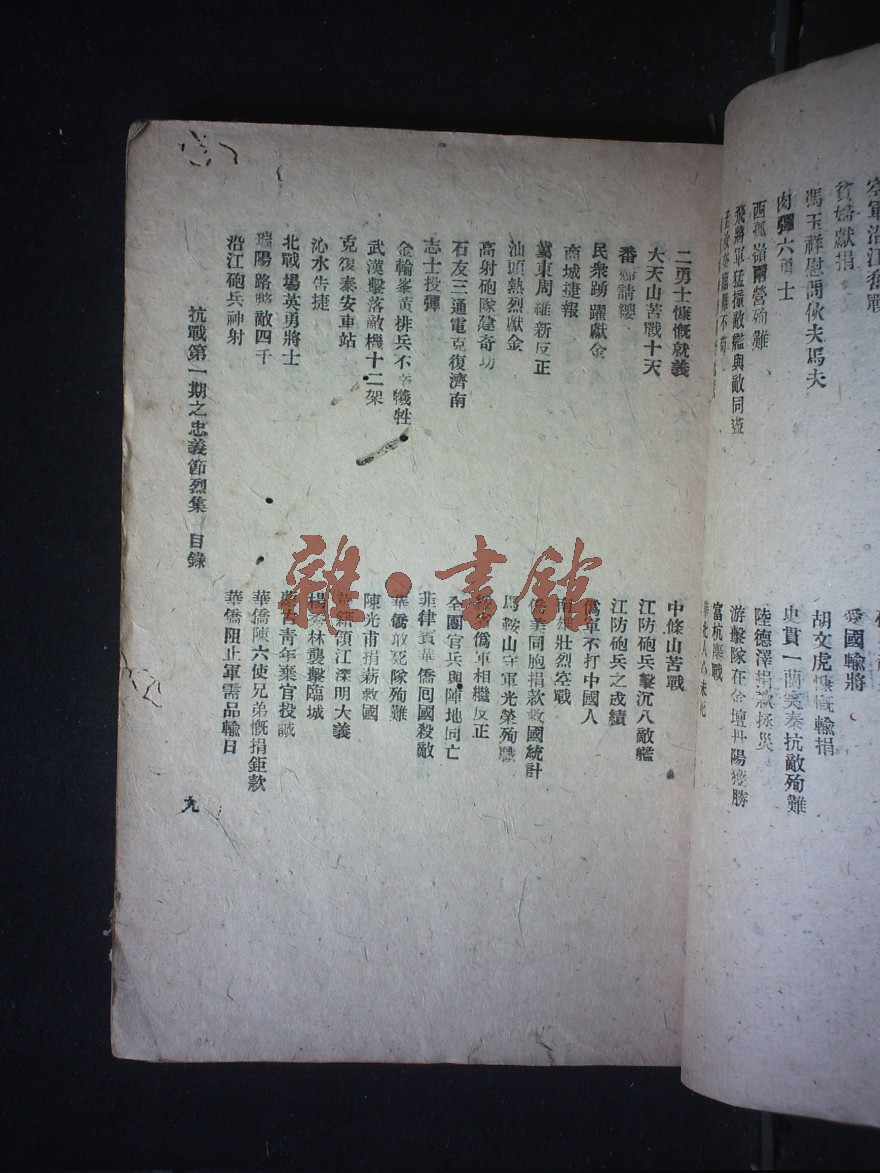 空軍沿江奮戰
貧婦獻捐
馮玉祥慰問伙夫馬夫
肉彈六勇士
西孤嶺爾營殉難
飛將軍猛撞敵艦與敵同盡
愛國輸將
胡文虎慷慨輸捐
史貫一蘭奚秦抗敵殉難
陸德澤捐款拯災
游擊隊在金壇丹陽獲勝
富杭襲戰
二勇士慷慨就義
大天山苦戰十天
番婦請纓
民衆踴躍獻金
商城捷報
冀東周維新反正
汕頭熱烈獻金
高射砲隊建奇功
石友三通電克復濟南
志士投彈
金輪峯黃排兵不幸犧牲
武漢擊落敵機十二架
克復泰安車站
沁水告捷
北戰場英勇將士
瑞陽路斃敵四千
沿江砲兵神射
中條山苦戰
江防砲兵擊沉八敵艦
江防砲兵之成績
僞軍不打中國人
南雄壯烈空戰
僑美同胞捐款救國統計
馬鞍山守軍光榮殉職
僞軍相繼反正
全團官兵與陣地同亡
菲律賓華僑囘國殺敵
華僑敢死隊殉難
陳光甫捐薪救國
領江深明大義
楊秀林襲擊臨城
蒙古靑年棄官投誠
華僑陳六使兄弟慨捐鉅款
華僑阻止軍需品輸日
抗戰第一期之忠義節烈集 目錄
九
雜·書館